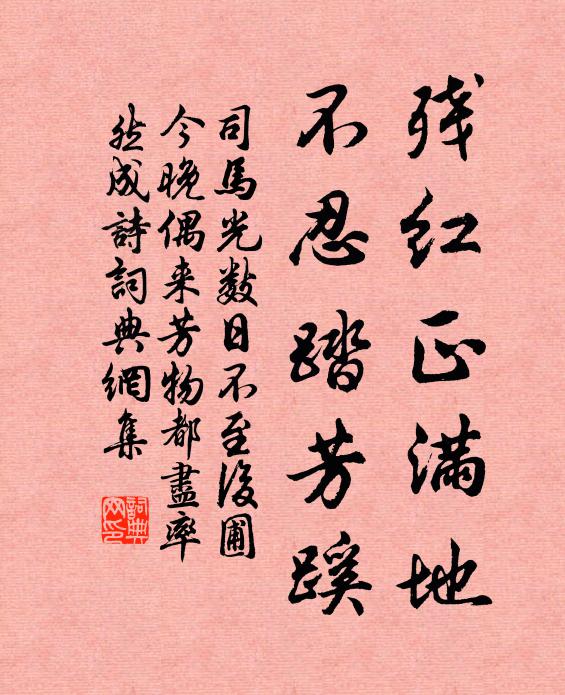 残红正满地
不忍踏芳蹊
司馬光数日不至後圃
今晚偶来芳物都盡率
然成詩詞典網集
詞典
网印